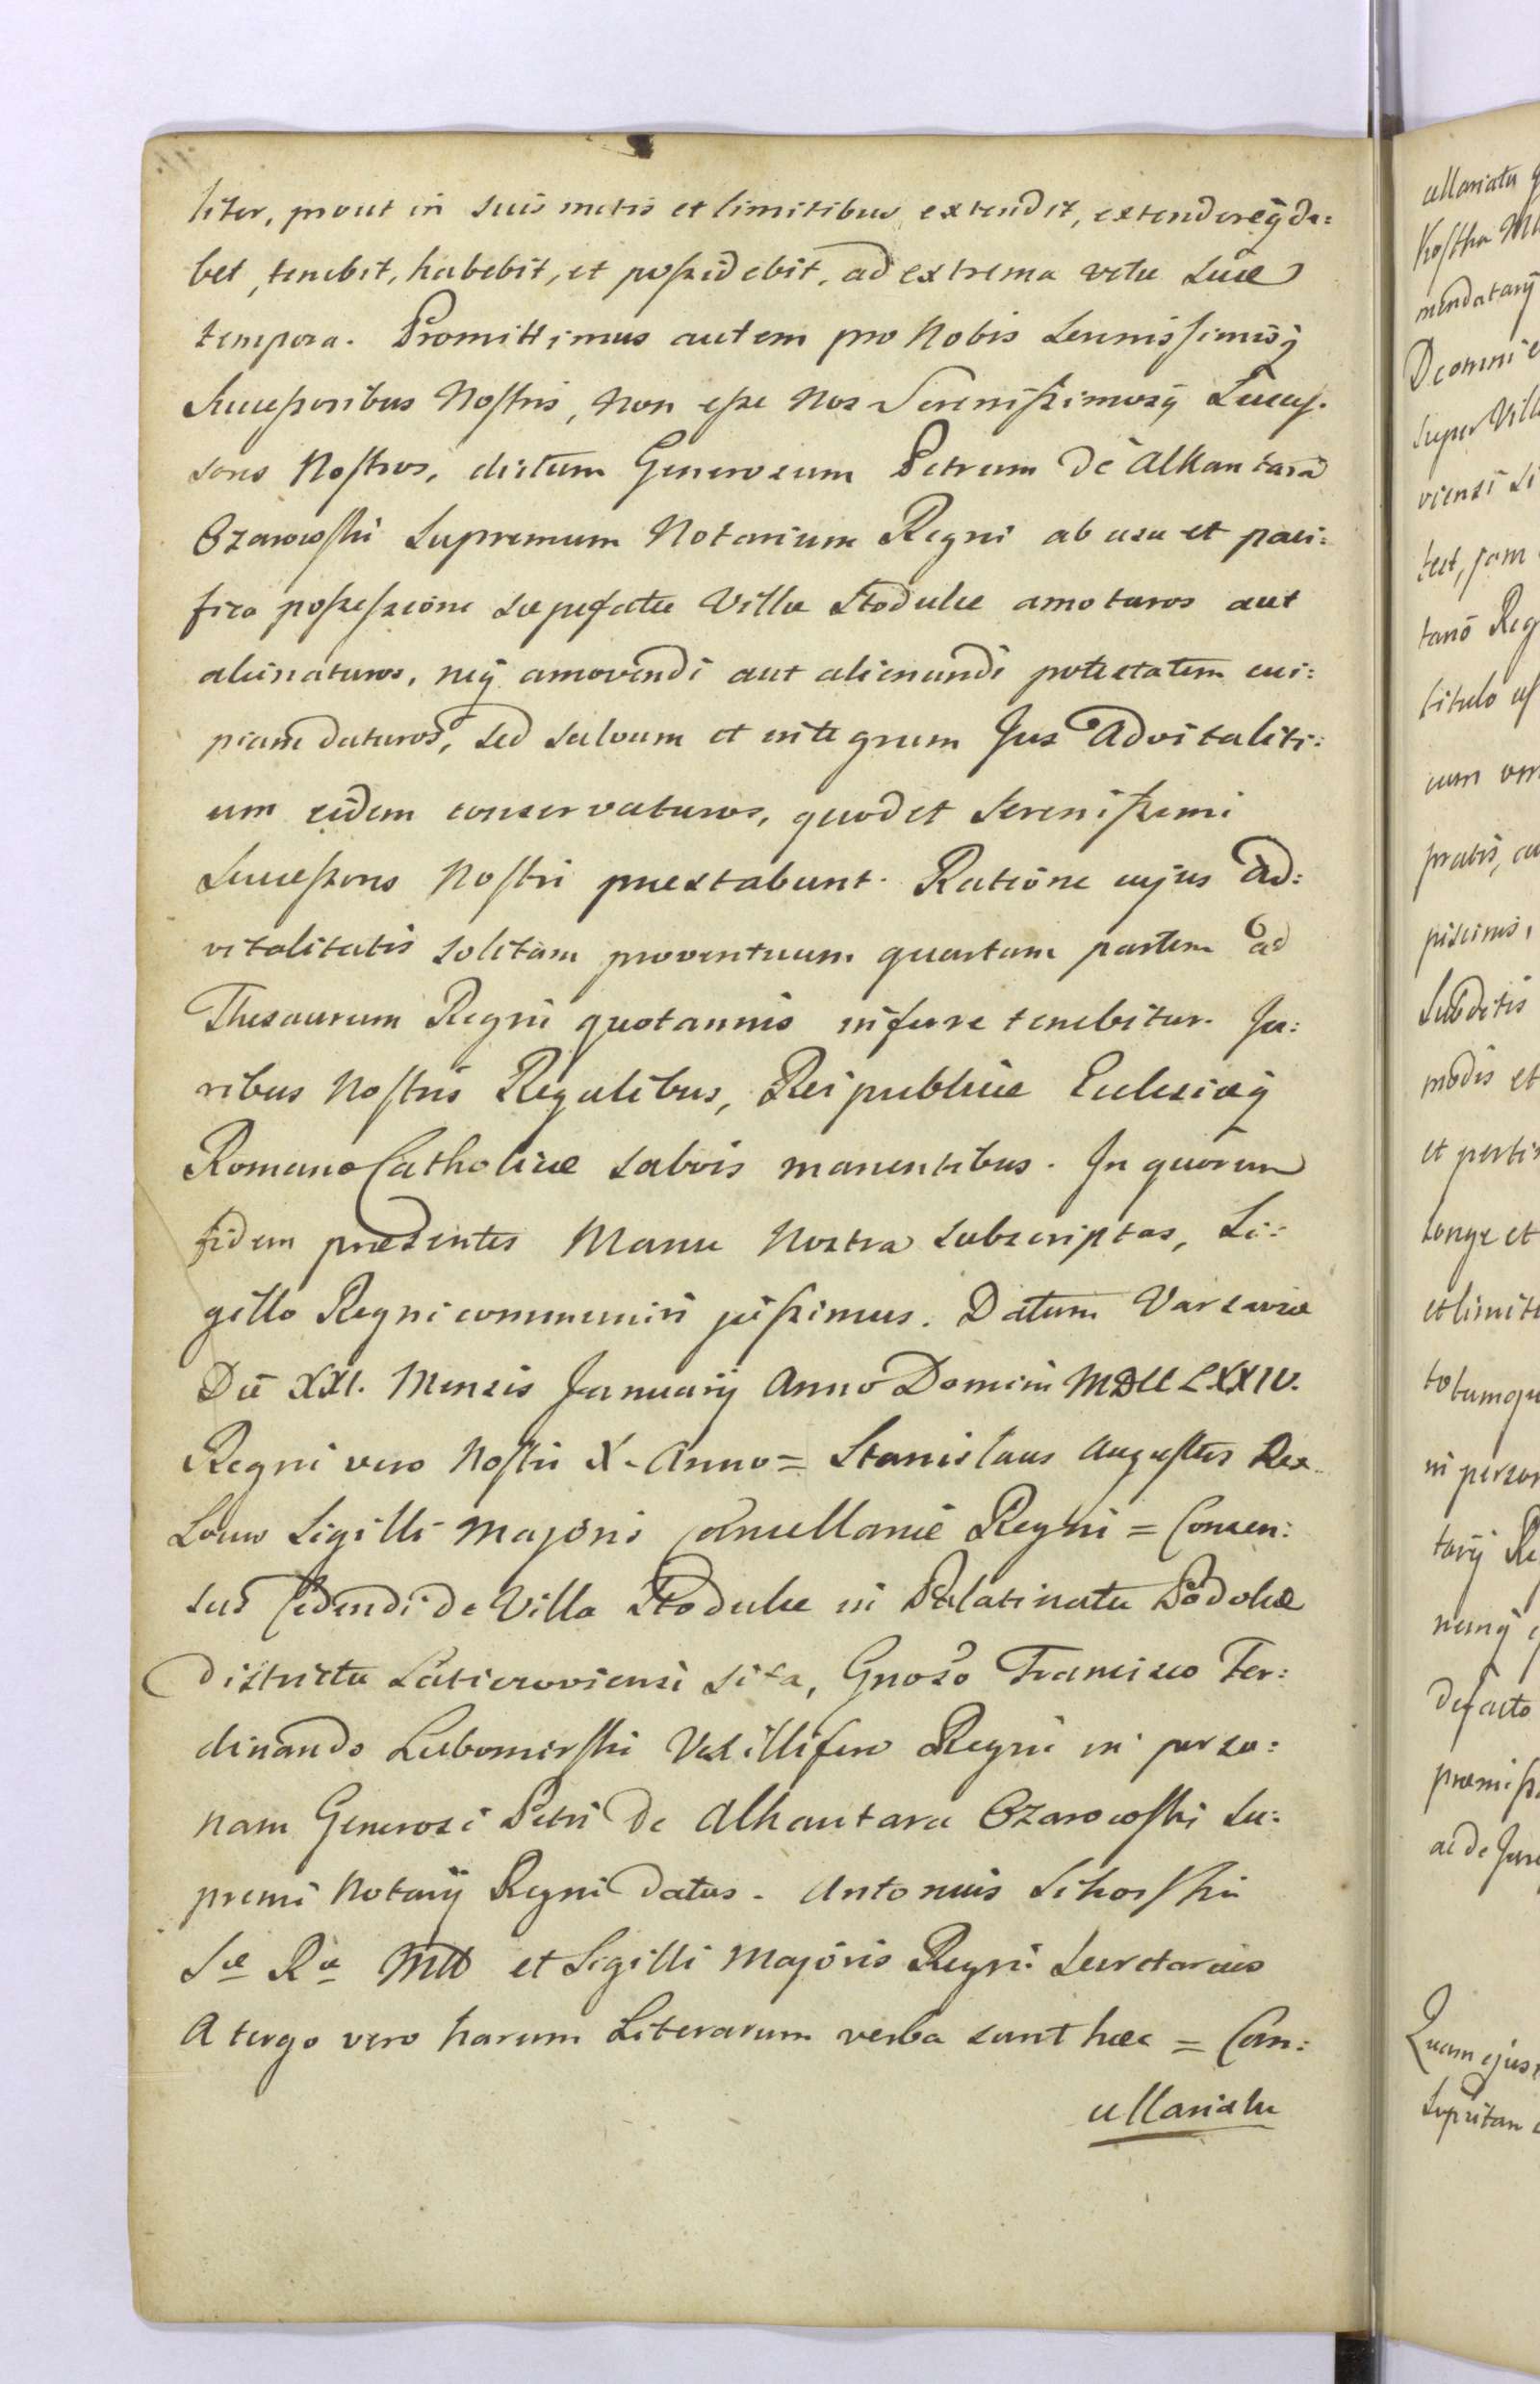 liter, prout in suis metis et limitibus extendit, extendereq̃ de:
bet, tenebit, habebit, et poßidebit, ad extrema vitæ suæ
tempora. Promittimus autem pro Nobis Serenissimisq̃
Succeßoribus Nostris, Non eße Nos Serenißimosq̃ Succeß.
sores Nostros, dictum Generosum Petrum de Alkantara
Ozarowski Supremum Notarium Regni ab usu et paci:
fica poßeßione sæpefatæ Villæ Stodulce amoturos aut
alienaturos, neq̃ amovendi aut alienandi potestatem cui:
piam daturos, sed salvum et integrum Jus Advitaliti:
um eidem conservaturos, quod et Serenißimi
Succeßores Nostri præstabunt. Ratione cujus Ad:
vitalitatis solitam proventuum quartam partem ad
Thesaurum Regni quotannis inferre tenebitur. Ju:
ribus Nostris Regalibus, Reipublicæ Ecclesiæq̃
Romano Catholicæ salvis manentibus. In quorum
fidem præsentes Manu Nostra subscriptas, Si:
gillo Regni communiri jußimus. Datum Varsaviæ
Die XXI. Mensis Januarij Anno Domini MDCCLXXIV.
Regni vero Nostri X. Anno = Stanislaus Augustus Rex.
Locus Sigilli Majoris Cancellariæ Regni = Consen:
sus Cedendi de Villa Stodulce in Palatinatu Podoliæ
Districtu Laticzoviensi sita, Gnoso Francisco Fer:
dinando Lubomirski Vexillifero Regni in perso:
nam Generosi Petri de Alkantara Ozarowski Su:
premi Notarij Regni datus. Antonius Sikorski
Sæ Ræ Mtt et Sigilli Majoris Regni Secretarius
A tergo vero harum Literarum verba sunt hæc = Can:
cellariatu